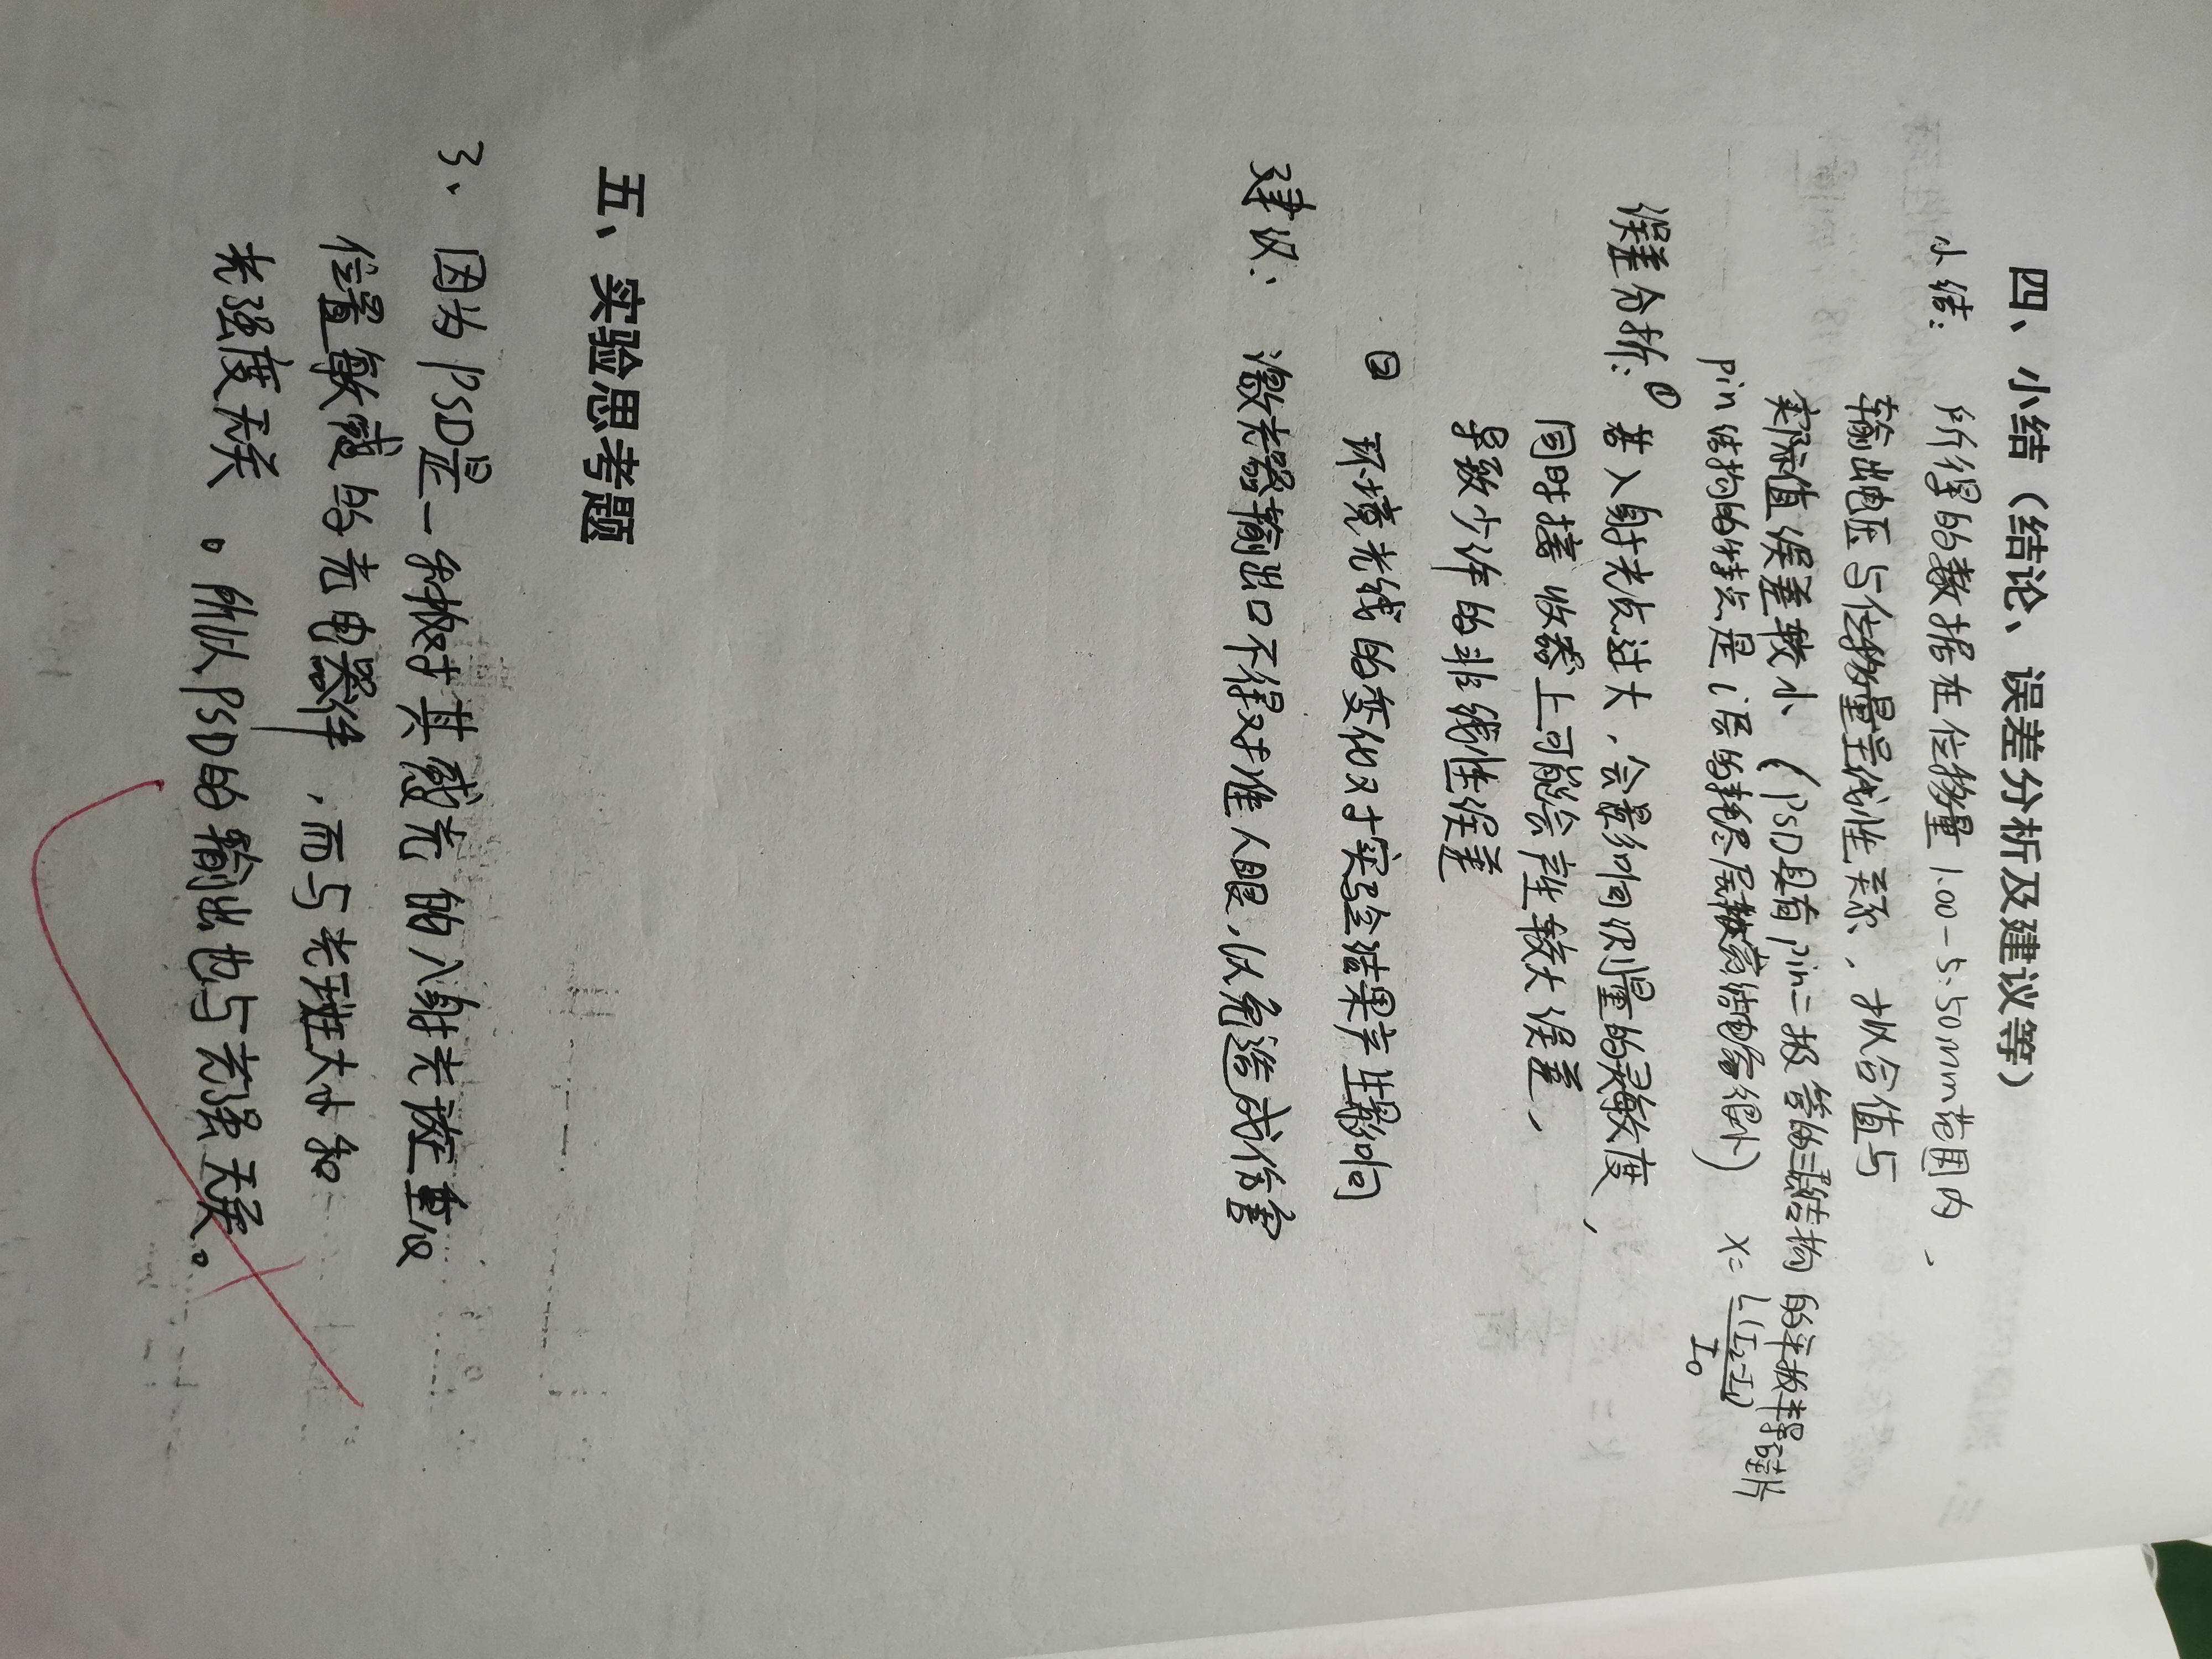 四、小结（结论、误差分析及建议等）
小结：所得的数据在位移量1.00-5.50mm范围内，
输出电压与位移量呈线性关系，拟合值与
实际值误差较小（PSD具有pin二极管的三层结构的平板半导硅片
pin结构的特点是i层的耗尽层较宽结电容很小） x=L(I₂-I₁)/I₀
误差分析：① 若入射光点过大，会影响测量的灵敏度，
同时接收器上可能会产生较大误差，
导致少许的非线性误差
② 环境光线的变化对实验结果产生影响
建议：激光器输出口不得对准人眼，以免造成伤害
五、实验思考题
3、因为PSD是一种对其感光的入射光斑重心
位置敏感的光电器件，而与光斑大小和
光强度无关。所以PSD的输出也与光强无关。